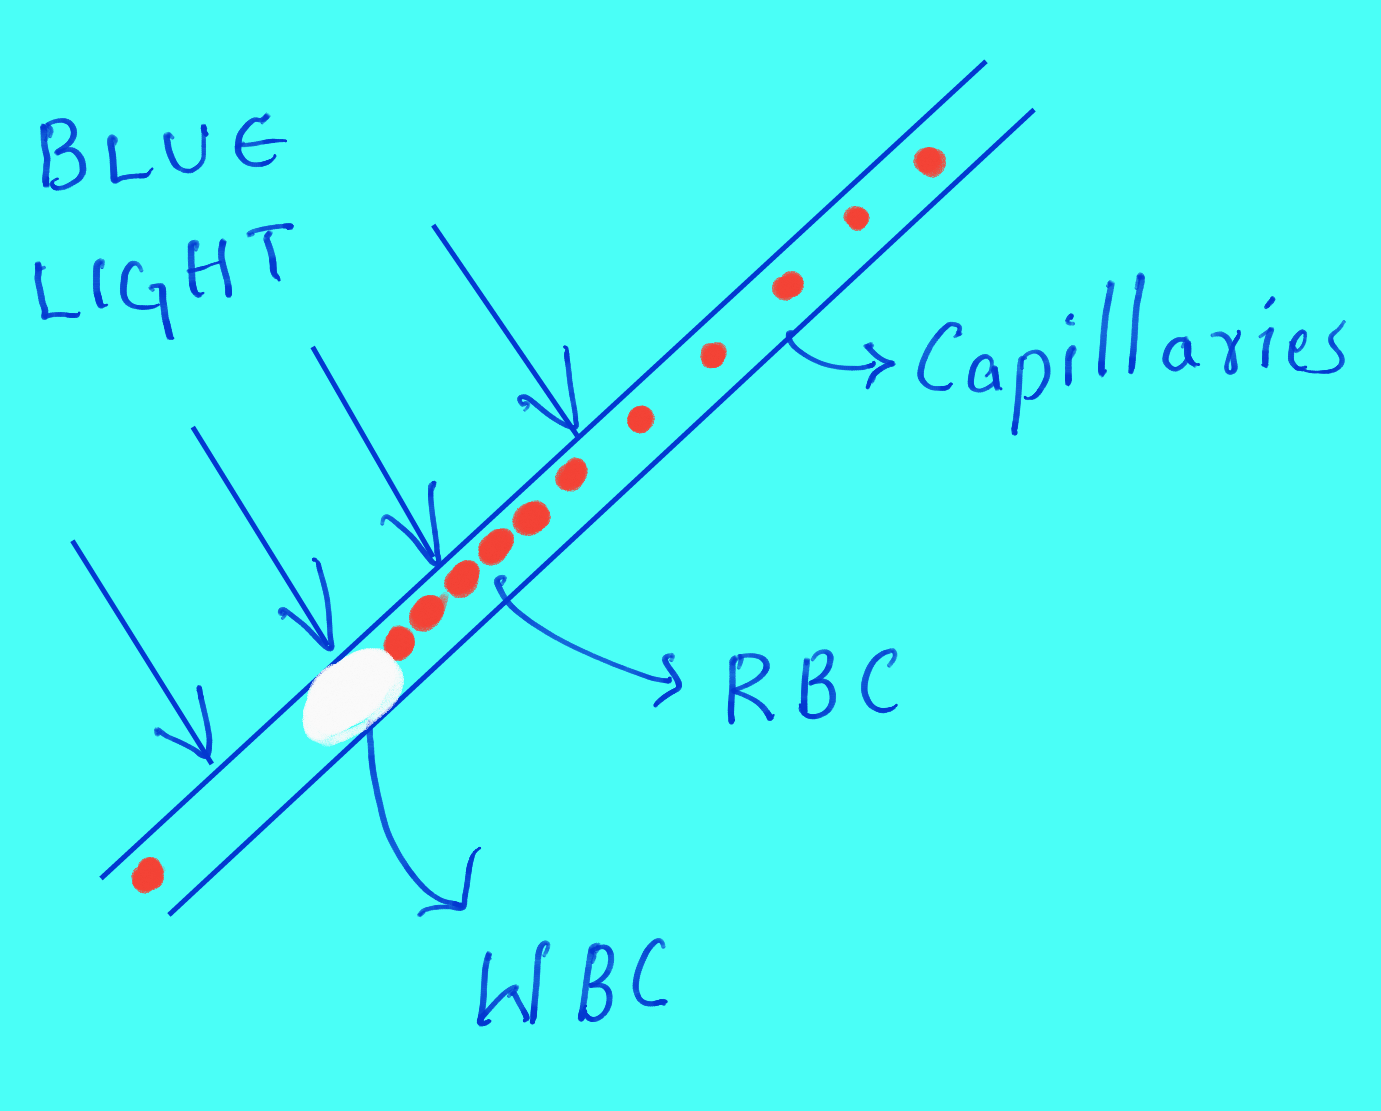 BLUE
LIGHT
Capillaries
RBC
WBC